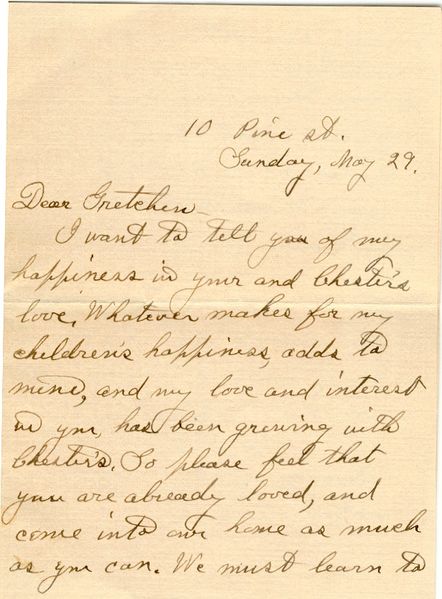 10 Pine St.
Sunday, May 29.
Dear Gretchen -
I want to tell you of my
happiness in your and Chester's
love. Whatever makes for my
children's happiness, adds to
mine, and my love and interest
in you, has been growing with
Chester's. So please feel that
you are already loved, and
come into our home as much
as you can. We must learn to